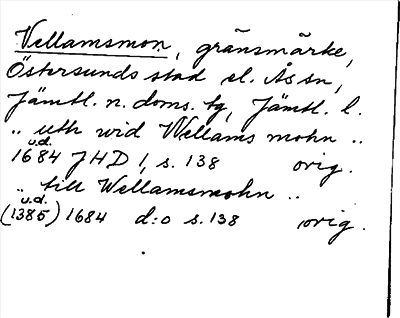 Vellamsmon, gränsmärke,
Östersunds stad el. Ås sn,
Jämtl. n. doms. tg, Jämtl. l.
.. uth wid Wellams mohn ..
u.d.
1684 JHD 1, s. 138 orig.
.. till Wellamsmohn ..
u.d.
(1385) 1684 d:o s. 138 orig.